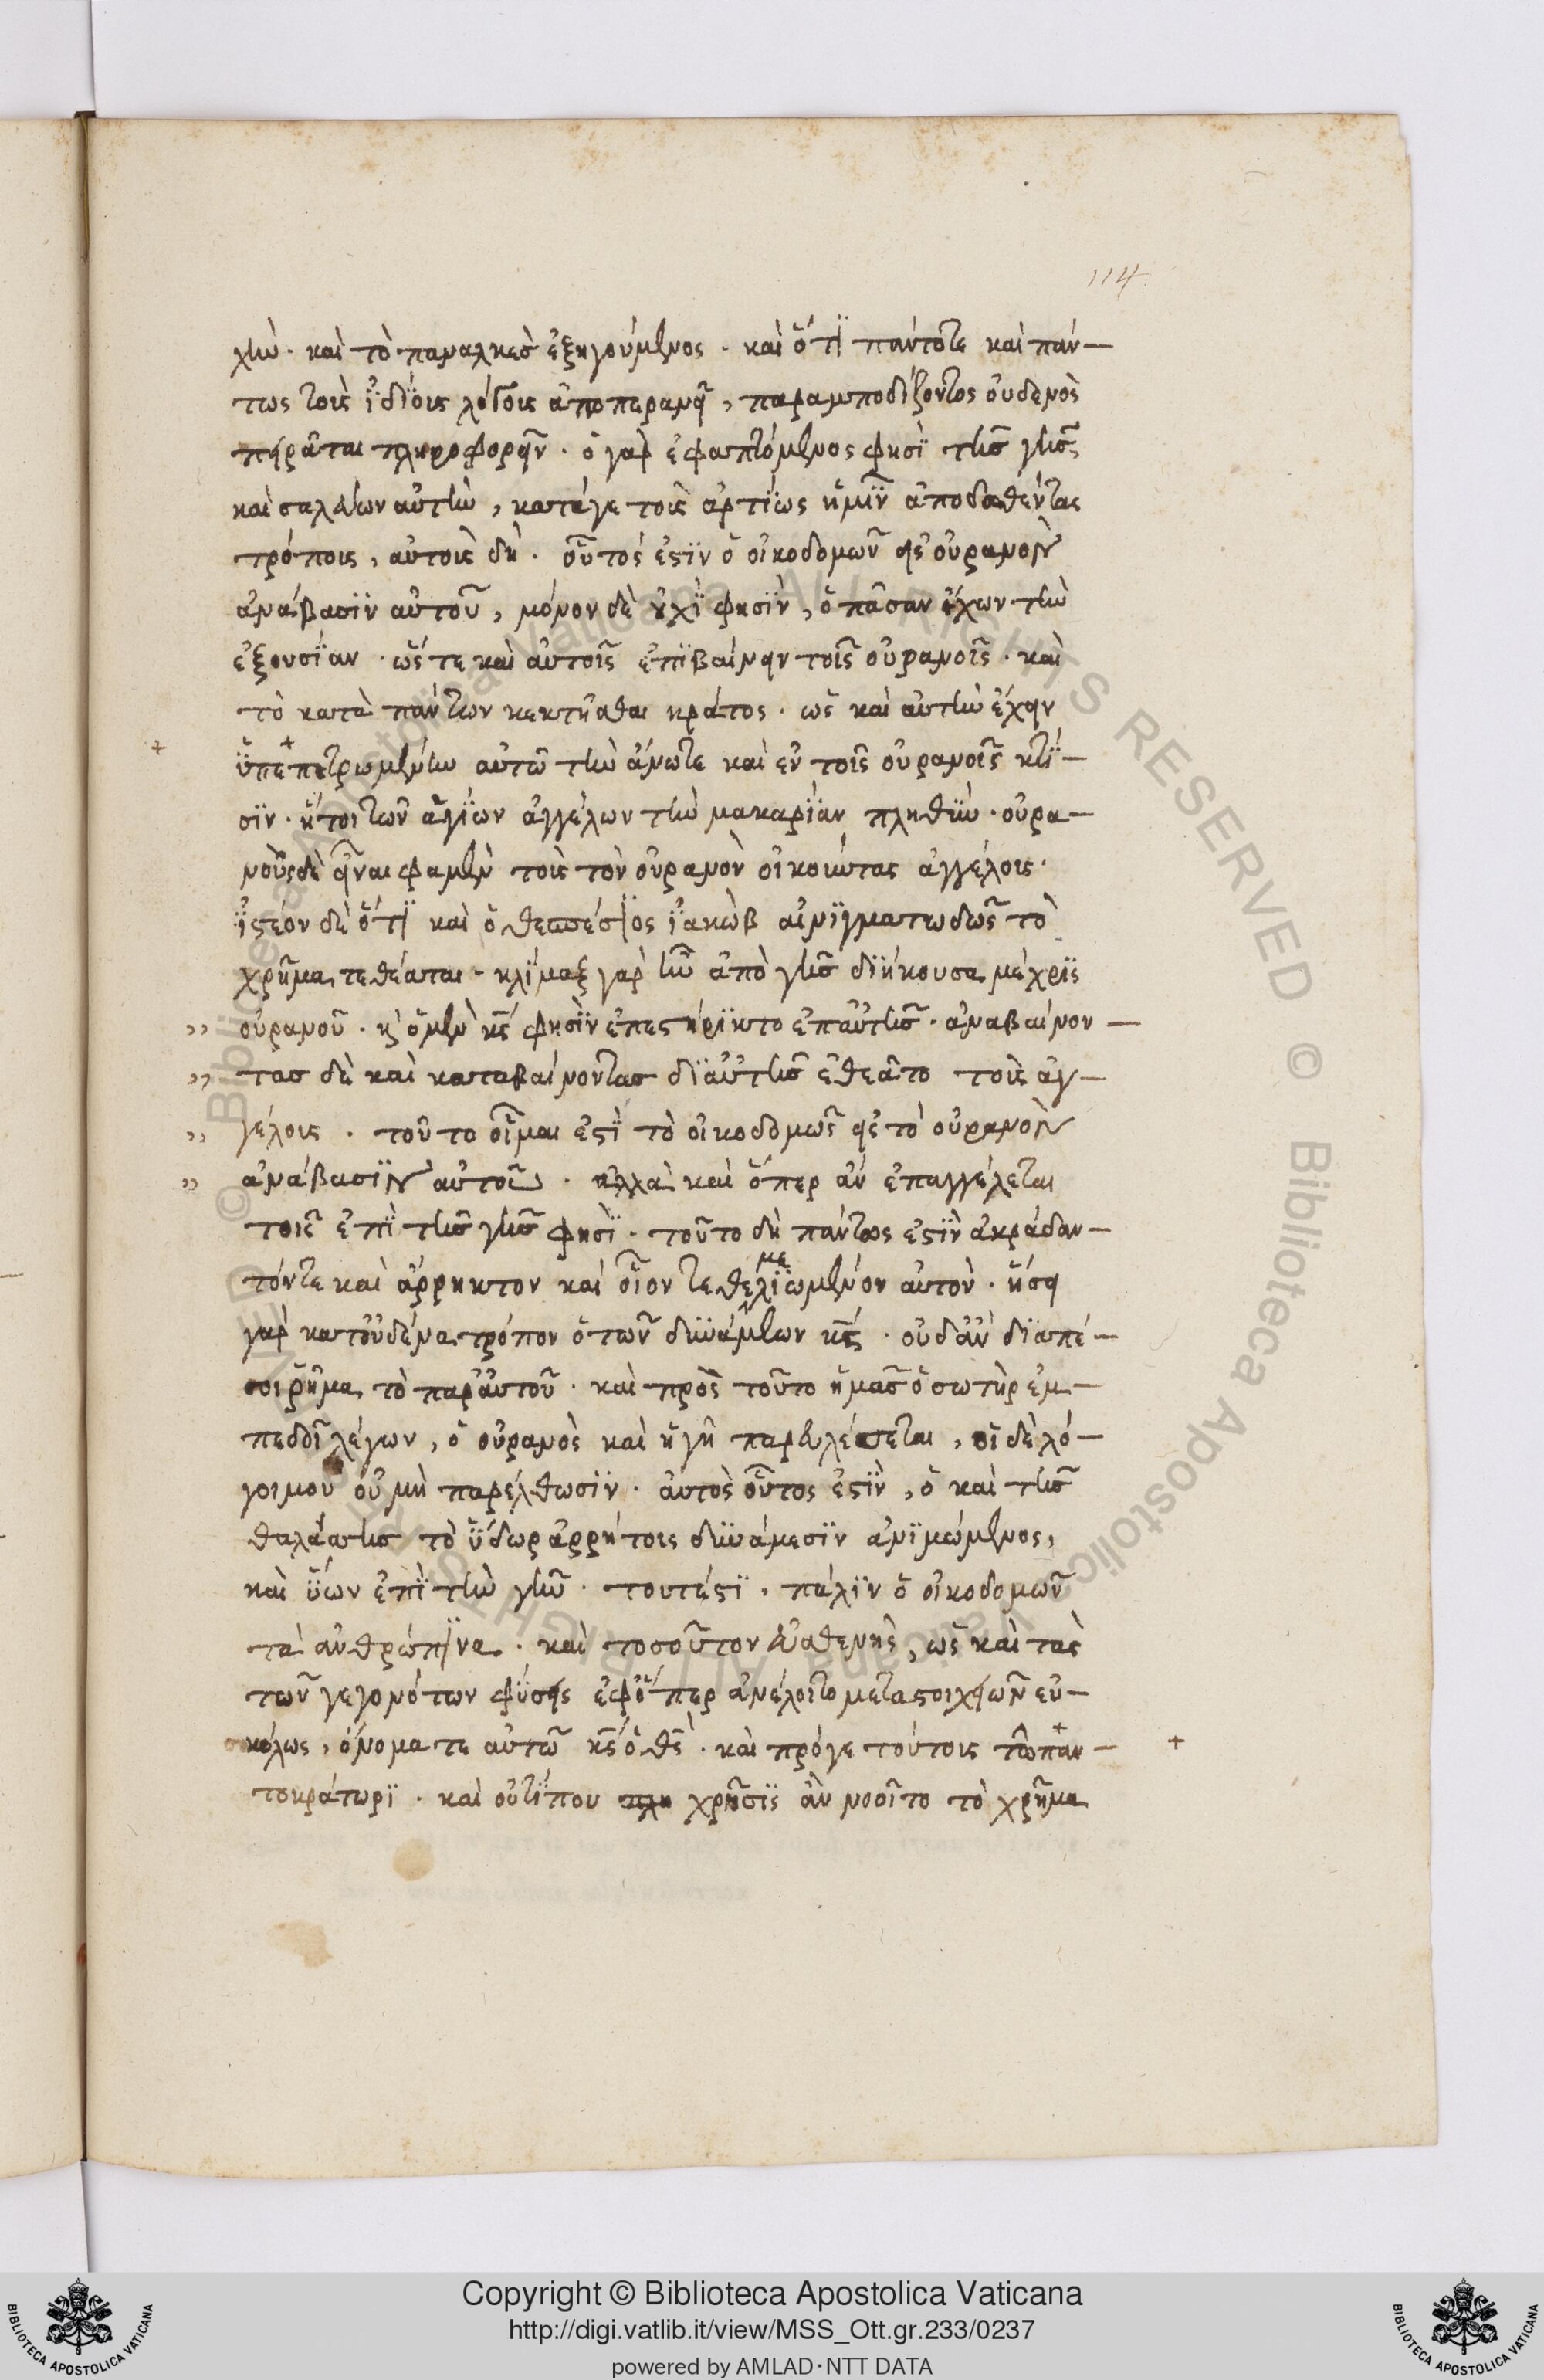 114.
χὴν· καὶ τὸ παναλκὲς ἐξηγούμενος· καὶ ὅτι πάντοτε καὶ πάν-
τως τοὺς ἰδίους λόγους ἀποπερανεῖ, παραμποδίζοντος οὐδενὸς
πειρᾶται πληροφορεῖν· ὁ γὰρ ἐφαπτόμενος φησὶ τῆς γῆς
καὶ σαλεύων αὐτὴν, κατάγε τοὺς ἀρτίως ἡμῖν ἀποδοθέντας
τρόπους, αὐτὸς δὴ· οὗτός ἐστιν ὁ οἰκοδομῶν εἰς οὐρανὸν
ἀνάβασιν αὐτοῦ, μόνον δὲ οὐχὶ φησὶν, ὁ πᾶσαν ἔχων τὴν
ἐξουσίαν· ὥστε καὶ αὐτοῖς ἐπιβαίνειν τοῖς οὐρανοῖς· καὶ
τὸ κατὰ πάντων κεκτῆσθαι κράτος· ὡς καὶ αὐτὴν ἔχειν
+ ὑπεστρωμένην αὐτῶ τὴν ἄνωτε καὶ ἐν τοῖς οὐρανοῖς κτί-
σιν· ἤτοι τῶν ἁγίων ἀγγέλων τὴν μακαρίαν πληθὺν· οὐρα-
νοὺς δὲ εἶναι φαμὲν τοὺς τὸν οὐρανὸν οἰκοῦντας ἀγγέλους·
ἰστέον δὲ ὅτι καὶ ὁ θεσπέσιος ἰακὼβ αἰνιγματωδῶς τὸ
χρῆμα τεθέαται· κλίμαξ γὰρ ἦν ἀπὸ γῆς διήκουσα μέχρις
,, οὐρανοῦ· κ ὁ μὲν κς φησὶν ἐπεστήρικτο ἐπαὐτῆς· ἀναβαίνον-
,, τας δὲ καὶ καταβαίνοντας διαὐτῆς ἐθεᾶτο τοὺς ἀγ-
,, γέλους· τοῦτο οἶμαι ἐστὶ τὸ οἰκοδομῶν εἰς τὸν οὐρανὸν
,, ἀνάβασιν αὐτοῦ· ἀλλὰ καὶ ὅπερ ἂν ἐπαγγέλεται
τοῖς ἐπὶ τῆς γῆς φησὶ· τοῦτο δὴ πάντως ἐστὶν ἀκράδαν-
τόντε καὶ ἄρρηκτον καὶ οἷον τεθεμελιωμένον αὐτὸν· ἥσει
γὰρ κατοὐδένα τρόπον ὁ τῶν δυνάμεων κς· οὐδἂν διαπέ-
σοι ῥῆμα τὸ παραὐτοῦ· καὶ πρὸς τοῦτο ἡμᾶς ὁ σωτὴρ ἐμ-
πεδοῖ λέγων, ὁ οὐρανὸς καὶ ἡ γῆ παρελεύσεται, οἱ δὲ λό-
γοι μου οὐ μὴ παρέλθωσιν· αὐτὸς οὗτος ἐστὶν, ὁ καὶ τῆς
θαλάσσης τὸ ὕδωρ ἀρρήτοις δυνάμεσιν ἀνιμώμενος,
καὶ ὕων ἐπὶ τὴν γῆν· τουτέστι, πάλιν ὁ οἰκοδομῶν
τὰ ἀνθρώπινα· καὶ τοσοῦτον εὐσθενὴς, ὡς καὶ τὰς
τῶν γεγονότων φύσεις ἐφὅπερ ἀνέλοιτο μεταστοιχειῶν εὐ-
κόλως, ὄνομα τε αὐτῶ κς ὁ θς· καὶ πρόγε τούτοις τὸ παν- +
τοκράτωρι· καὶ οὔτίπου χρῆσις ἂν νοοῖτο τὸ χρῆμα
Copyright © Biblioteca Apostolica Vaticana
http://digi.vatlib.it/view/MSS_Ott.gr.233/0237
powered by AMLAD·NTT DATA